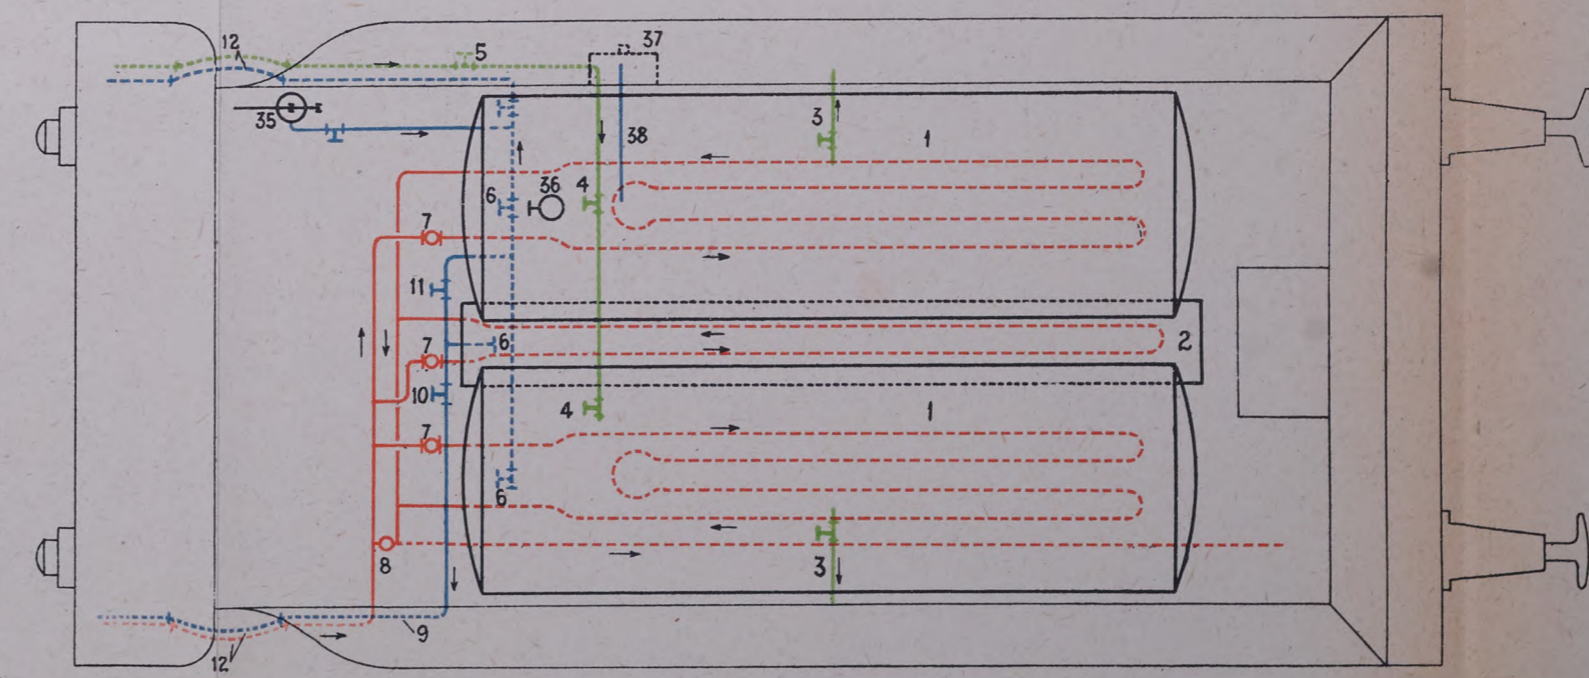 12
5
37
35
3
1
38
6
36
4
7
11
7
6
2
10
4
1
7
6
8
3
12
9